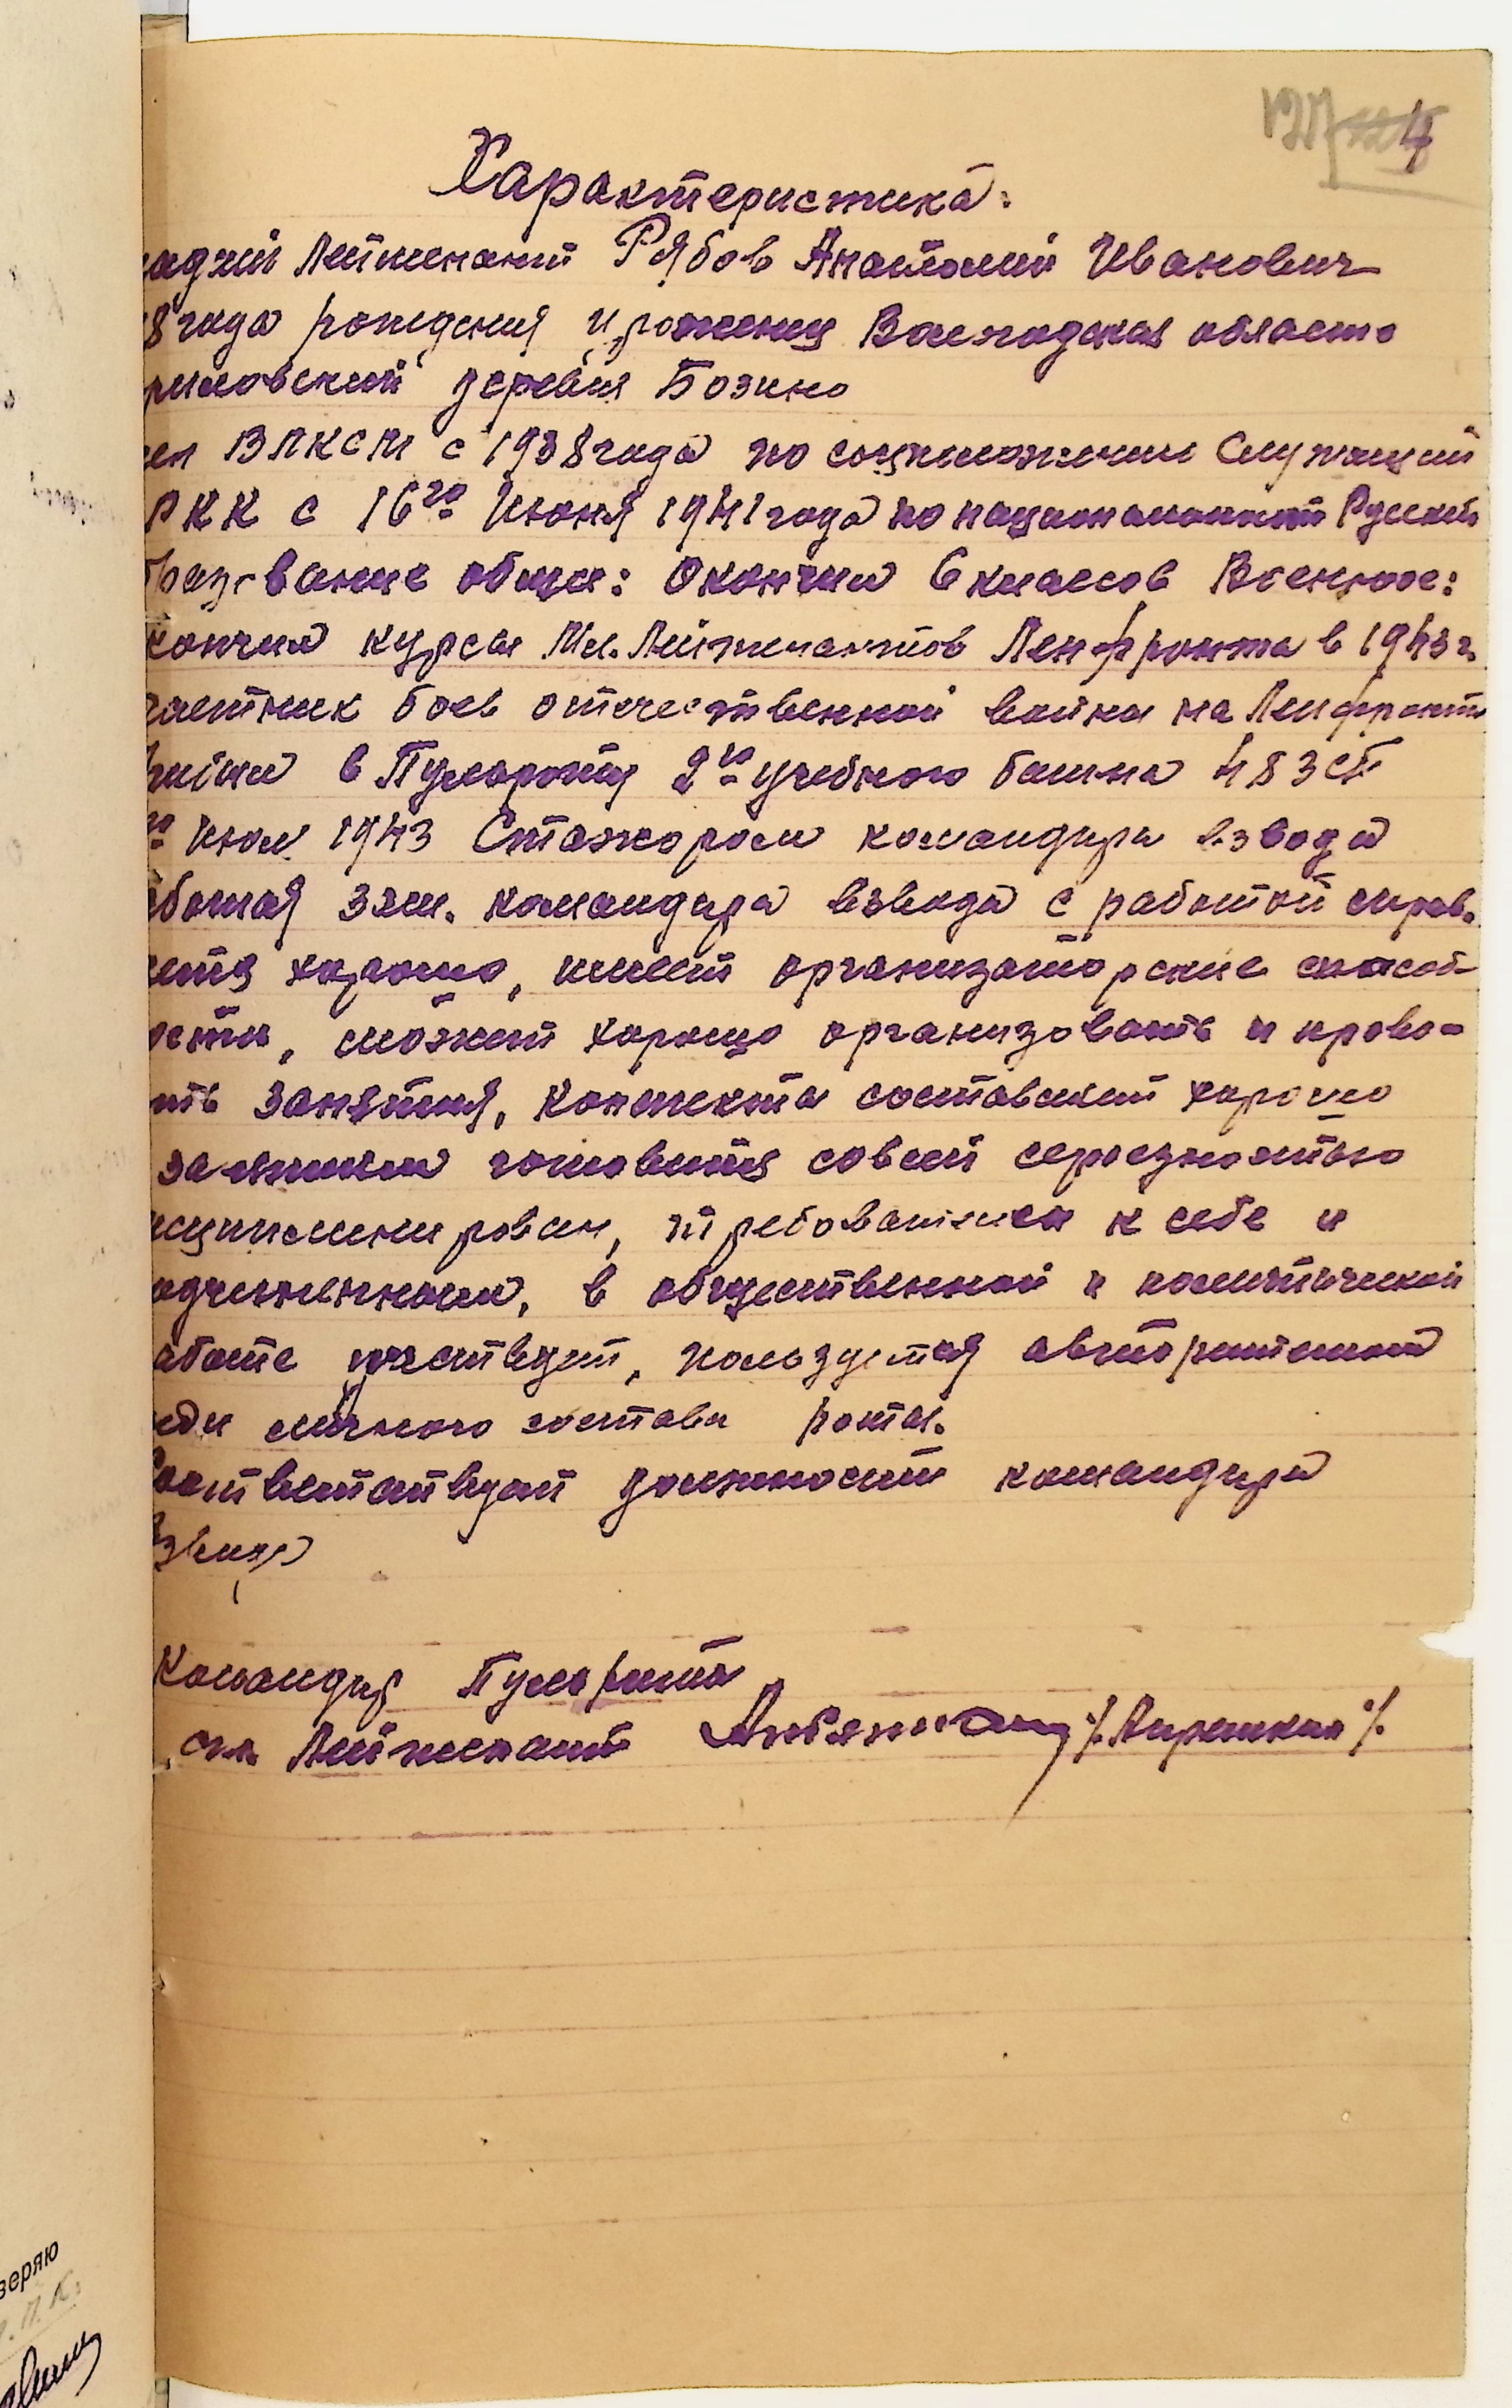 127 4
Характеристика:
адший Лейтенант Рябов Анатолий Иванович
8 года рождения урожениц Вологодская область
деревня Бозино
ен ВЛКСМ с 1938 года по соцположении Служащий
РКК с 16го Июня 1941 года по национальности Русский
бразование общи: Окончил 6 классов Военное:
кончил курсы Мл. Лейтенантов Ленфронта в 1943 г.
частник боев отечественной войны на Ленфронте
в Пульроты 2го учебного бат-на 483 сп
го Июля 1943 Стажором командира взвода
аботая зам. командира взвода с работой справ-
яется хорошо, имеет организаторские способ-
ости, может хорошо организовать и прово-
ить занятия, конспекты составляет хорошо
занятиям готовится совсей серьезностью
исциплинирован, требователен к себе и
одчиненным, в общественной и политической
аботе участвует, пользуется авторитетом
еди личного состава роты.
Соответствует должности командира
Взвода
Командир Пульроты
ст. Лейтенант
веряю